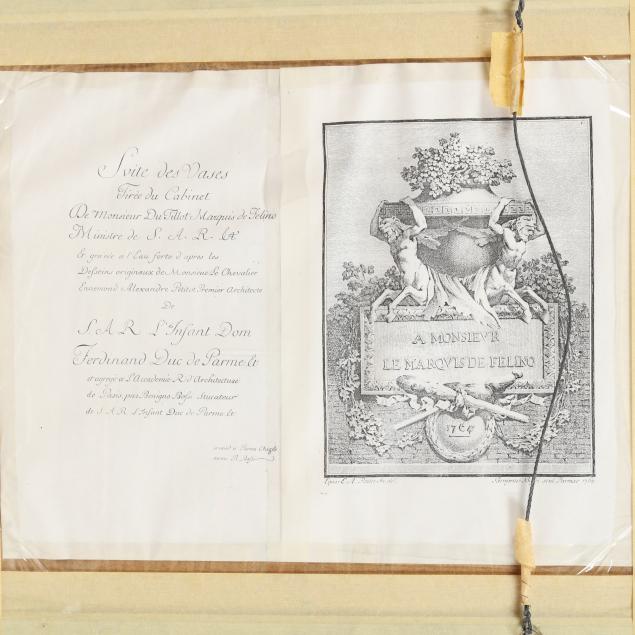 Suite des Vases
Tirée du Cabinet
De Monsieur Du Tillot Marquis de Felino
Ministre de S. A. R. &t
Et gravée a l'Eau forte d'apres les
Desseins originaux de Monsieur Le Chevalier
Ennemond Alexandre Petitot Premier Architecte
De
S. A. R. L'Infant Dom
Ferdinand Duc de Parme &t
et agregé a L'Academie R. d'Architecture
de Paris, par Benigno Bossi Stucateur
de S. A. R. L'Infant Duc de Parme &t
a Parma
A MONSIEVR
LE MARQVIS DE FELINO
1764
E. A. Petitot
Benignus Bossi Parmae 1764